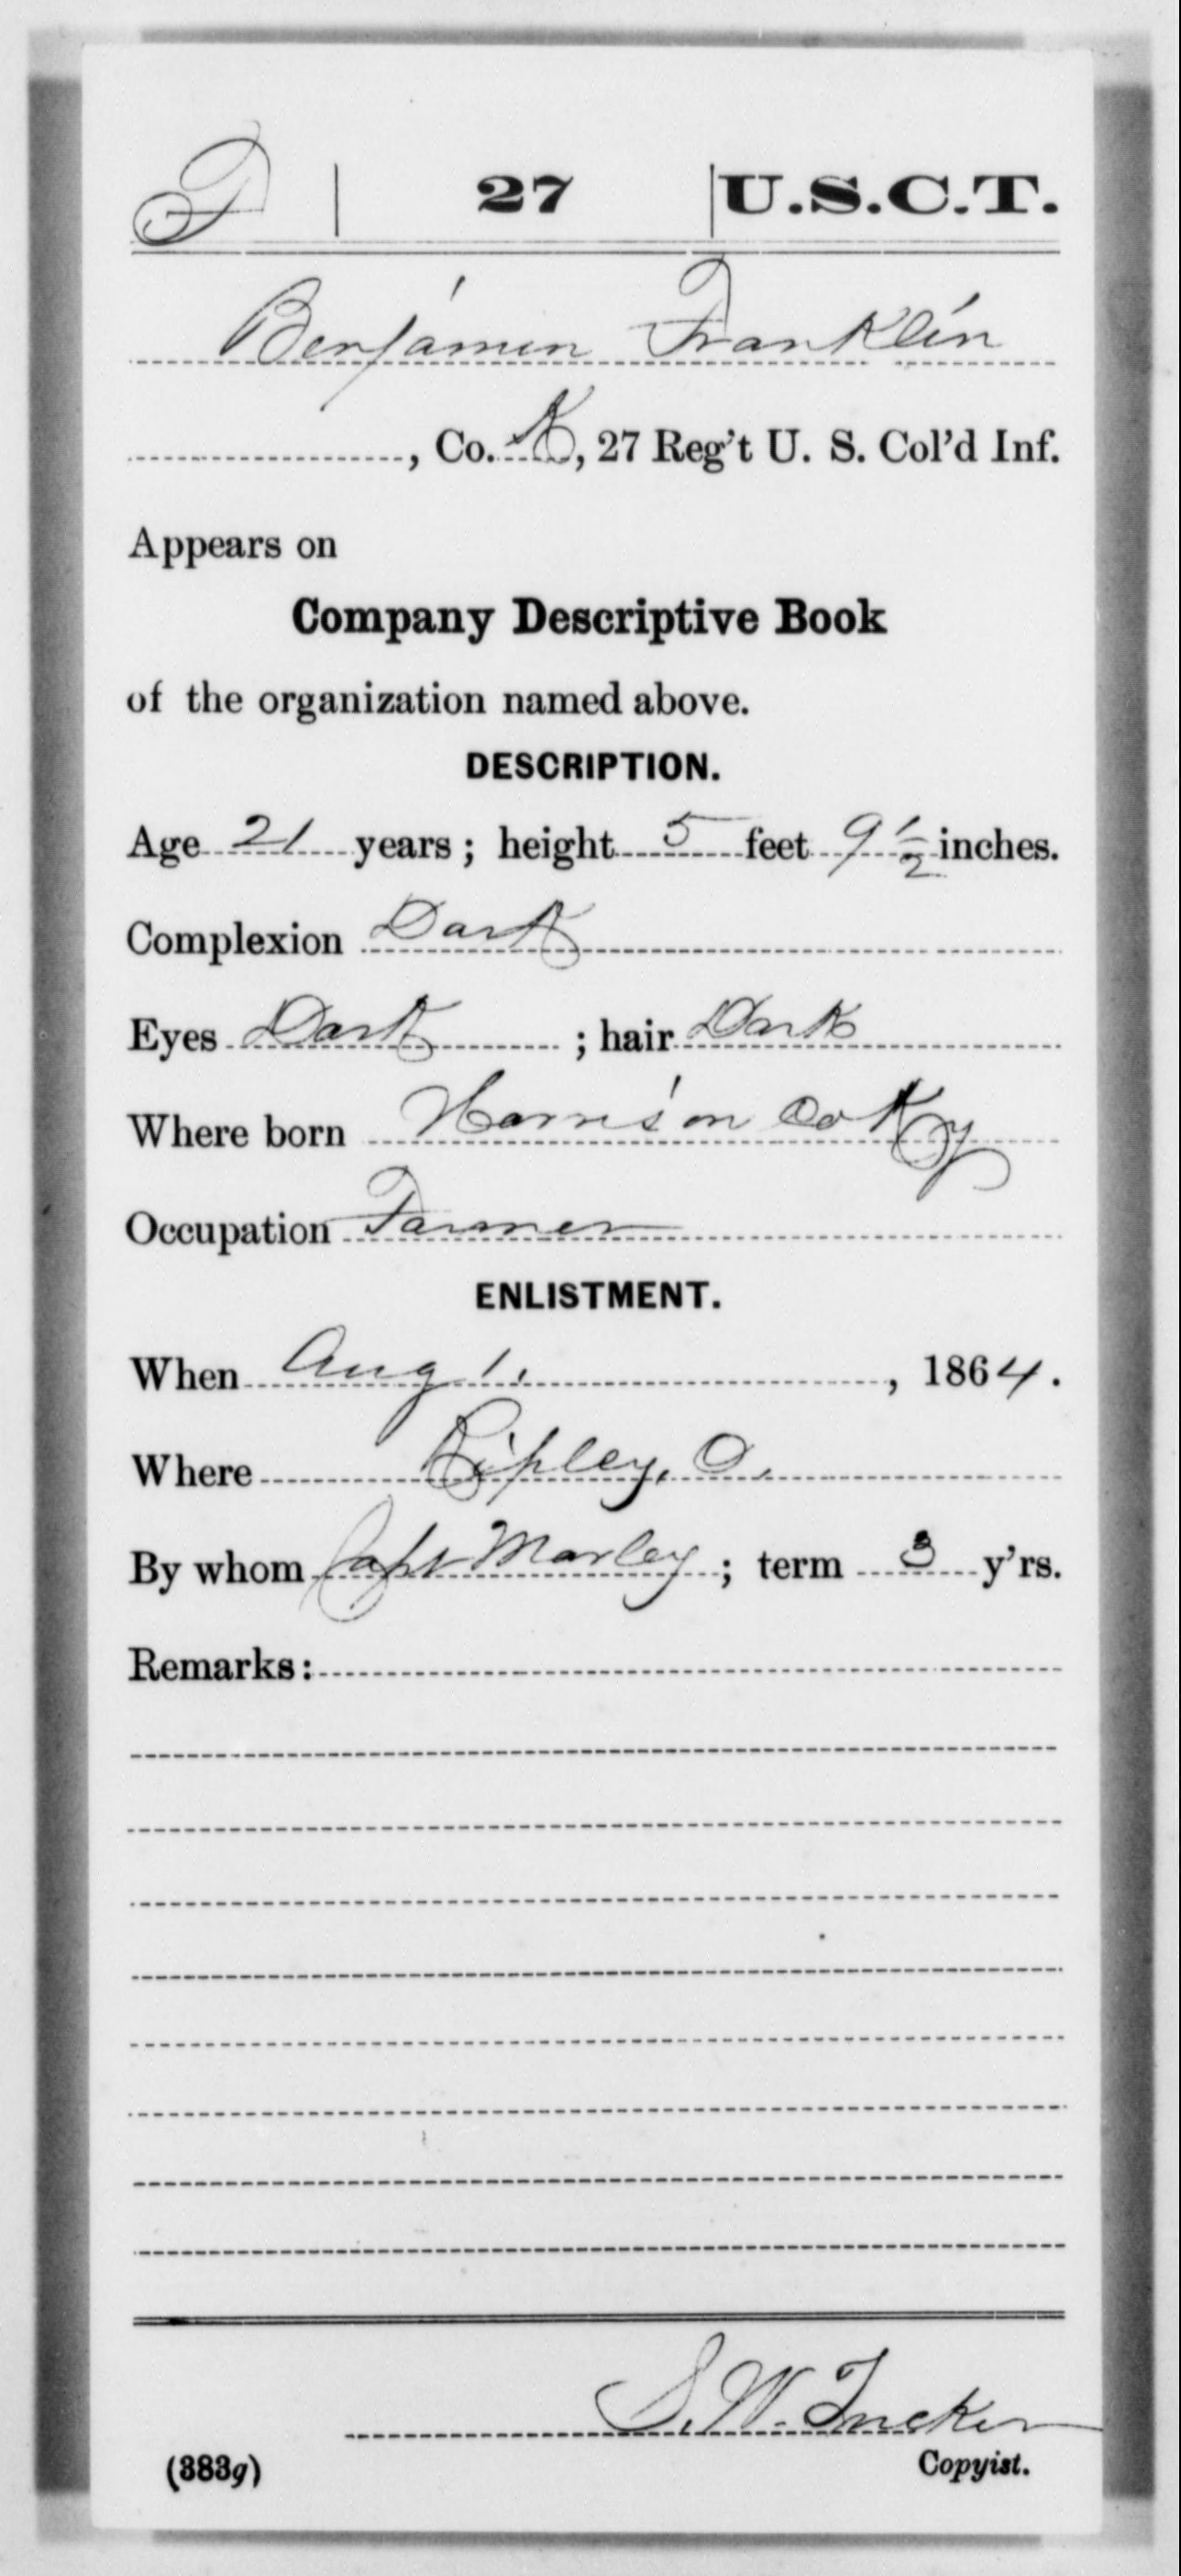 F | 27 | U.S.C.T.
Benjamin Franklin
, Co. K, 27 Reg't U. S. Col'd Inf.
Appears on
Company Descriptive Book
of the organization named above.
DESCRIPTION.
Age 21 years; height 5 feet 9 1/2 inches.
Complexion Dark
Eyes Dark ; hair Dark
Where born Harrison Co Ky
Occupation Farmer
ENLISTMENT.
When Aug 1, , 1864.
Where Ripley, O.
By whom Capt Marley ; term 3 y'rs.
Remarks:
S. W. Tucker
(383g) Copyist.